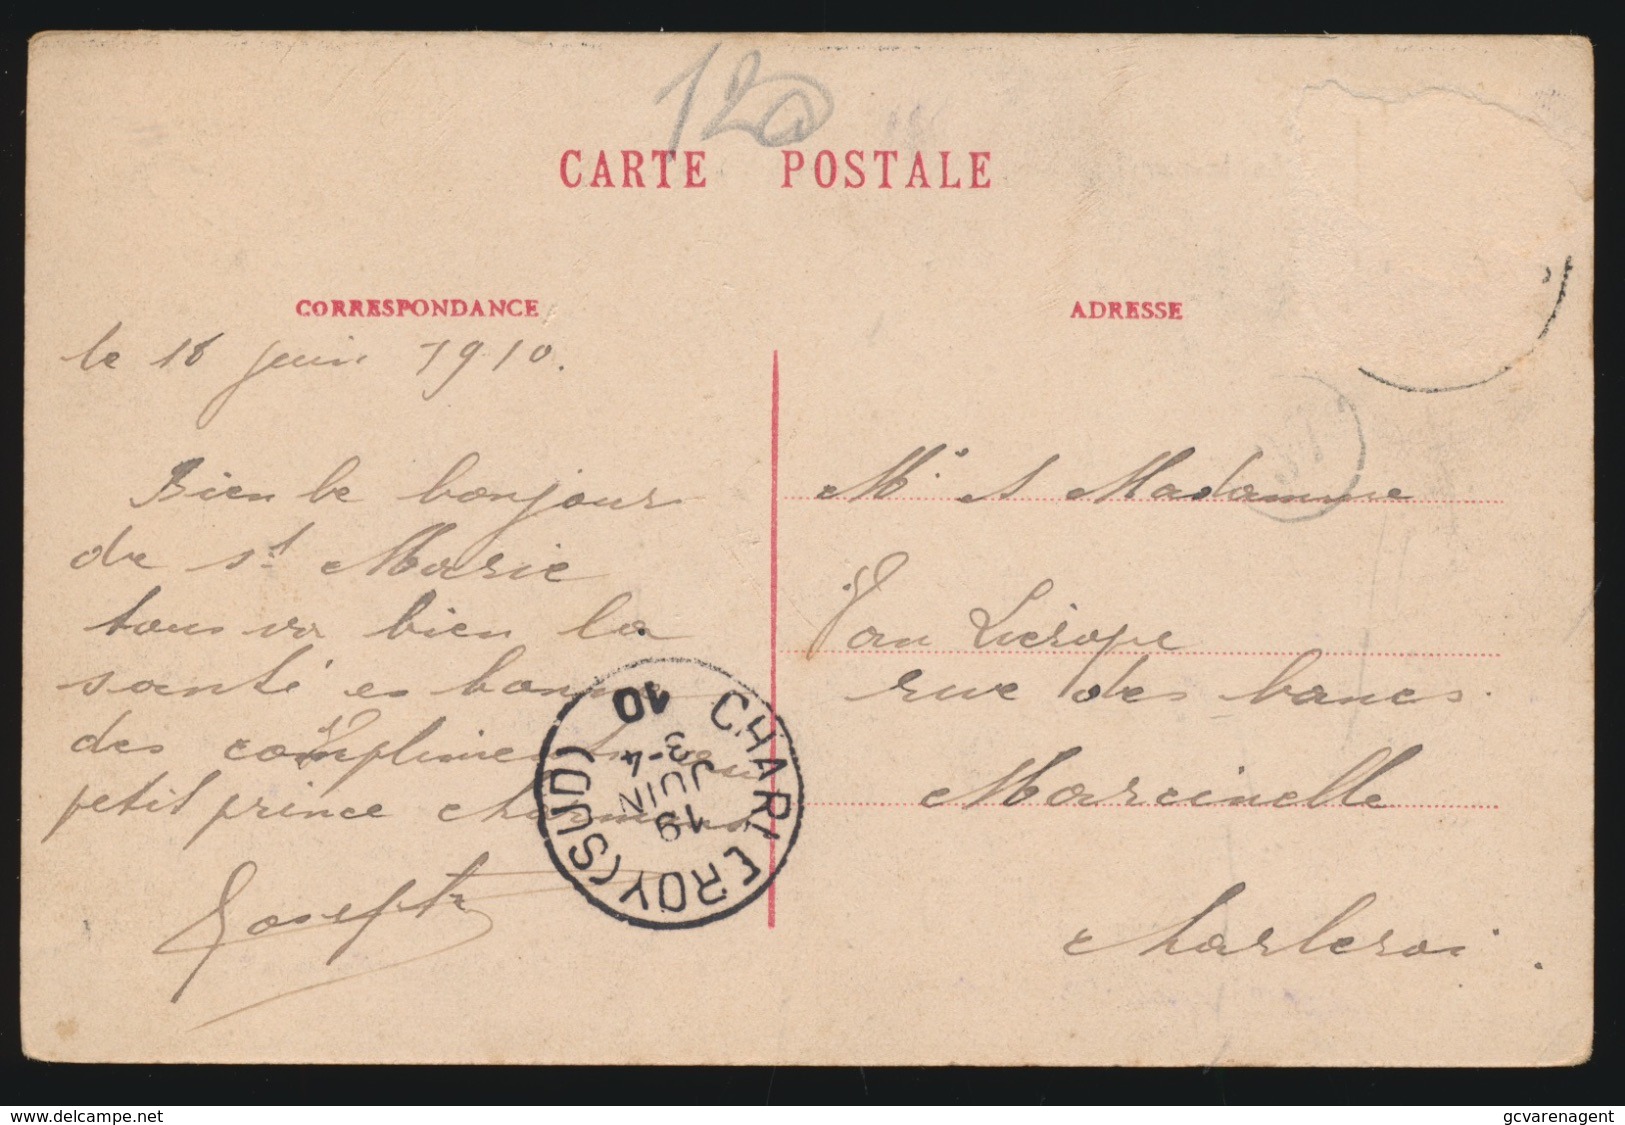 120
CARTE POSTALE
CORRESPONDANCE
ADRESSE
le 18 juin 1910.
Bien le bonjour
de St Marie
tous va bien la
santé es bonne
des compliments au
petit prince charmant
Joseph
Mr. & Madamme
Van Lierope
rue des bancs.
Marcinelle
Charleroi.
CHARLEROY (SUD)
19
JUIN
3-4
10
www.delcampe.net
gcvarenagent